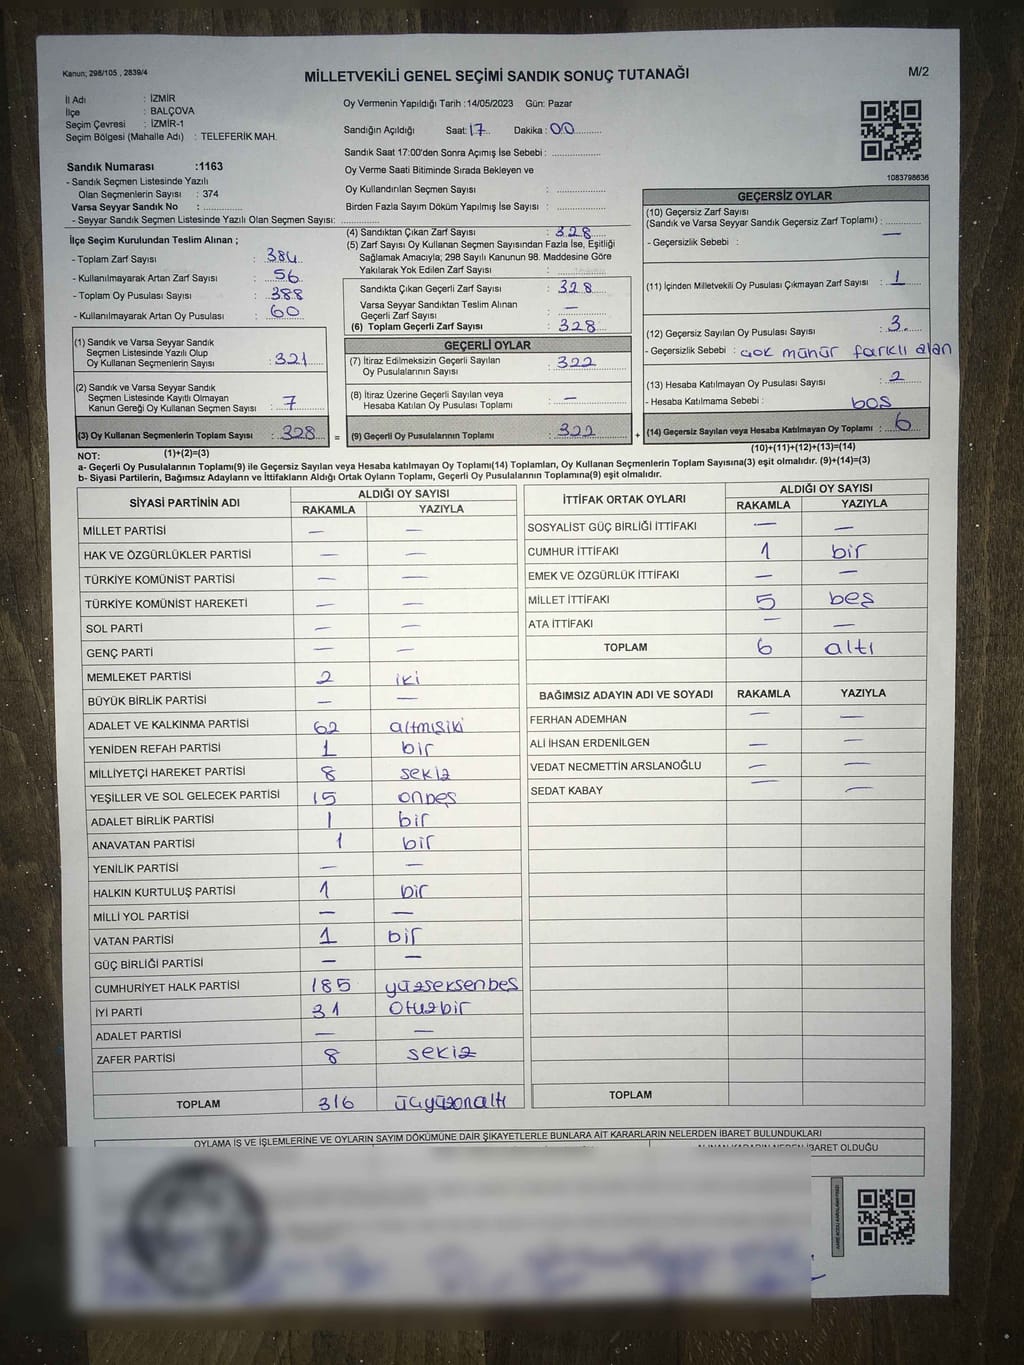 Kanun; 298/105 , 2839/4
MİLLETVEKİLİ GENEL SEÇİMİ SANDIK SONUÇ TUTANAĞI
M/2
İl Adı : İZMİR
İlçe : BALÇOVA
Seçim Çevresi : İZMİR-1
Seçim Bölgesi (Mahalle Adı) : TELEFERİK MAH.
Sandık Numarası :1163
- Sandık Seçmen Listesinde Yazılı
Olan Seçmenlerin Sayısı : 374
Varsa Seyyar Sandık No :
- Seyyar Sandık Seçmen Listesinde Yazılı Olan Seçmen Sayısı:
Oy Vermenin Yapıldığı Tarih :14/05/2023 Gün: Pazar
Sandığın Açıldığı Saat: 17 Dakika : 00
Sandık Saat 17:00'den Sonra Açımış İse Sebebi :
Oy Verme Saati Bitiminde Sırada Bekleyen ve
Oy Kullandırılan Seçmen Sayısı :
Birden Fazla Sayım Döküm Yapılmış İse Sayısı :
1083798636
İlçe Seçim Kurulundan Teslim Alınan ;
- Toplam Zarf Sayısı : 384
- Kullanılmayarak Artan Zarf Sayısı : 56
- Toplam Oy Pusulası Sayısı : 388
- Kullanılmayarak Artan Oy Pusulası : 60
(1) Sandık ve Varsa Seyyar Sandık
Seçmen Listesinde Yazılı Olup
Oy Kullanan Seçmenlerin Sayısı : 321
(2) Sandık ve Varsa Seyyar Sandık
Seçmen Listesinde Kayıtlı Olmayan
Kanun Gereği Oy Kullanan Seçmen Sayısı : 7
(3) Oy Kullanan Seçmenlerin Toplam Sayısı : 328
(1)+(2)=(3)
(4) Sandıktan Çıkan Zarf Sayısı : 328
(5) Zarf Sayısı Oy Kullanan Seçmen Sayısından Fazla İse, Eşitliği
Sağlamak Amacıyla; 298 Sayılı Kanunun 98. Maddesine Göre
Yakılarak Yok Edilen Zarf Sayısı :
Sandıkta Çıkan Geçerli Zarf Sayısı : 328
Varsa Seyyar Sandıktan Teslim Alınan
Geçerli Zarf Sayısı : —
(6) Toplam Geçerli Zarf Sayısı : 328
GEÇERLİ OYLAR
(7) İtiraz Edilmeksizin Geçerli Sayılan
Oy Pusulalarının Sayısı : 322
(8) İtiraz Üzerine Geçerli Sayılan veya
Hesaba Katılan Oy Pusulası Toplamı : —
= (9) Geçerli Oy Pusulalarının Toplamı : 322 +
GEÇERSİZ OYLAR
(10) Geçersiz Zarf Sayısı
(Sandık ve Varsa Seyyar Sandık Geçersiz Zarf Toplamı) :
- Geçersizlik Sebebi : —
(11) İçinden Milletvekili Oy Pusulası Çıkmayan Zarf Sayısı : 1
(12) Geçersiz Sayılan Oy Pusulası Sayısı : 3
- Geçersizlik Sebebi : çok mühür farklı alan
(13) Hesaba Katılmayan Oy Pusulası Sayısı : 2
- Hesaba Katılmama Sebebi : boş
(14) Geçersiz Sayılan veya Hesaba Katılmayan Oy Toplamı : 6
(10)+(11)+(12)+(13)=(14)
NOT:
a- Geçerli Oy Pusulalarının Toplamı(9) ile Geçersiz Sayılan veya Hesaba katılmayan Oy Toplamı(14) Toplamları, Oy Kullanan Seçmenlerin Toplam Sayısına(3) eşit olmalıdır. (9)+(14)=(3)
b- Siyasi Partilerin, Bağımsız Adayların ve İttifakların Aldığı Ortak Oyların Toplamı, Geçerli Oy Pusulalarının Toplamına(9) eşit olmalıdır.
SİYASİ PARTİNİN ADI ALDIĞI OY SAYISI
RAKAMLA YAZIYLA
MİLLET PARTİSİ — —
HAK VE ÖZGÜRLÜKLER PARTİSİ — —
TÜRKİYE KOMÜNİST PARTİSİ — —
TÜRKİYE KOMÜNİST HAREKETİ — —
SOL PARTİ — —
GENÇ PARTİ — —
MEMLEKET PARTİSİ 2 iki
BÜYÜK BİRLİK PARTİSİ — —
ADALET VE KALKINMA PARTİSİ 62 altmışiki
YENİDEN REFAH PARTİSİ 1 bir
MİLLİYETÇİ HAREKET PARTİSİ 8 sekiz
YEŞİLLER VE SOL GELECEK PARTİSİ 15 onbeş
ADALET BİRLİK PARTİSİ 1 bir
ANAVATAN PARTİSİ 1 bir
YENİLİK PARTİSİ — —
HALKIN KURTULUŞ PARTİSİ 1 bir
MİLLİ YOL PARTİSİ — —
VATAN PARTİSİ 1 bir
GÜÇ BİRLİĞİ PARTİSİ — —
CUMHURİYET HALK PARTİSİ 185 yüzseksenbeş
İYİ PARTİ 31 otuzbir
ADALET PARTİSİ — —
ZAFER PARTİSİ 8 sekiz
TOPLAM 316 üçyüzonaltı
İTTİFAK ORTAK OYLARI ALDIĞI OY SAYISI
RAKAMLA YAZIYLA
SOSYALİST GÜÇ BİRLİĞİ İTTİFAKI — —
CUMHUR İTTİFAKI 1 bir
EMEK VE ÖZGÜRLÜK İTTİFAKI — —
MİLLET İTTİFAKI 5 beş
ATA İTTİFAKI — —
TOPLAM 6 altı
BAĞIMSIZ ADAYIN ADI VE SOYADI RAKAMLA YAZIYLA
FERHAN ADEMHAN — —
ALİ İHSAN ERDENİLGEN — —
VEDAT NECMETTİN ARSLANOĞLU — —
SEDAT KABAY — —
TOPLAM
OYLAMA İŞ VE İŞLEMLERİNE VE OYLARIN SAYIM DÖKÜMÜNE DAİR ŞİKAYETLERLE BUNLARA AİT KARARLARIN NELERDEN İBARET BULUNDUKLARI
İBARET OLDUĞU